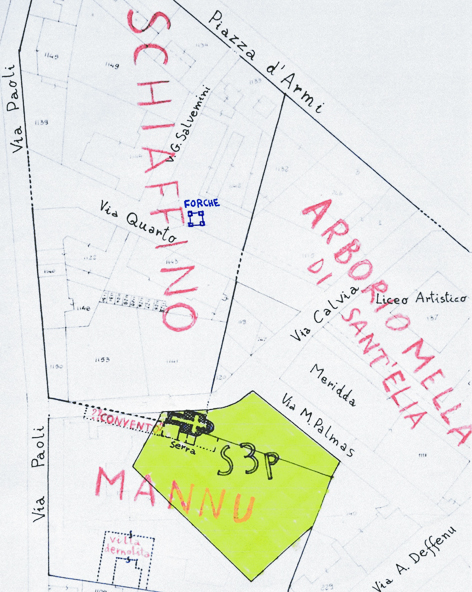 Piazza d'Armi
SCHIAFFINO
Via Paoli
1149
1149
1139
v. G. Salvemini
FORCHE
Via Quarto
ARBORIO MELLA
DI SANT'ELIA
Via Calvia
Liceo Artistico
Meridda
Via M. Palmas
1193
??CONVENTO
serra
S3P
MANNU
Via Paoli
villa
demolita
Via A. Deffenu